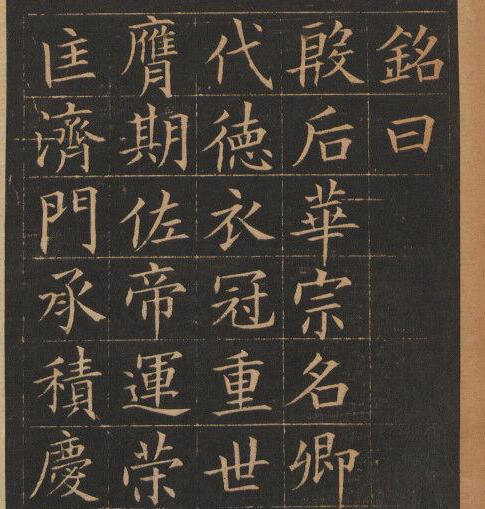 銘曰
殷后華宗名卿
代德衣冠重世
膺期佐帝運荣
匡濟門承積慶